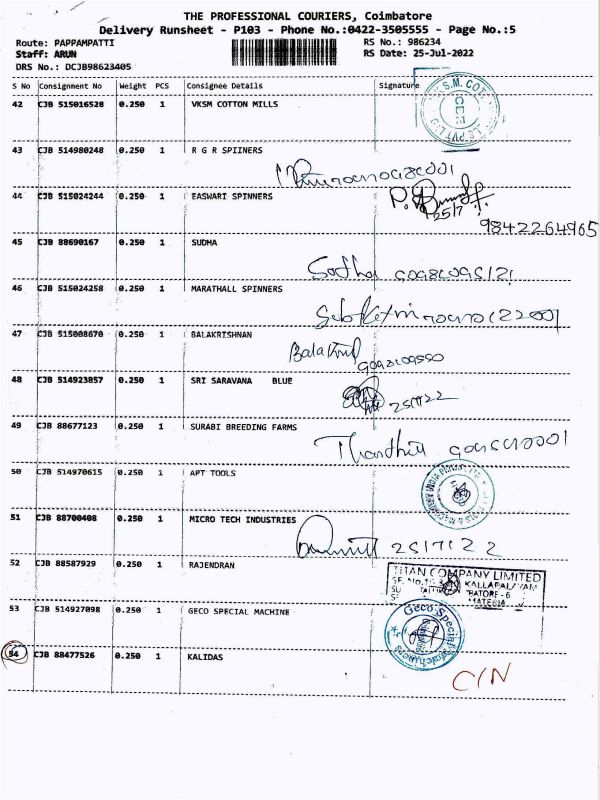 THE PROFESSIONAL COURIERS, Coimbatore
Delivery Runsheet - P103 - Phone No.:0422-3505555 - Page No.:5
Route: PAPPAMPATTI RS No.: 986234
Staff: ARUN RS Date: 25-Jul-2022
DRS No.: DCJB98623405
S No Consignment No Weight PCS Consignee Details Signature
42 CJB 515016528 0.250 1 VKSM COTTON MILLS
43 CJB 514980248 0.250 1 R G R SPIINERS
44 CJB 515024244 0.250 1 EASWARI SPINNERS
25/7
9842264965
45 CJB 88690167 0.250 1 SUDHA
Sudha
46 CJB 515024258 0.250 1 MARATHALL SPINNERS
47 CJB 515008670 0.250 1 BALAKRISHNAN
48 CJB 514923857 0.250 1 SRI SARAVANA BLUE
25/7/22
49 CJB 88677123 0.250 1 SURABI BREEDING FARMS
50 CJB 514970615 0.250 1 APT TOOLS
51 CJB 88700408 0.250 1 MICRO TECH INDUSTRIES
25/7/22
52 CJB 88587929 0.250 1 RAJENDRAN
TITAN COMPANY LIMITED
53 CJB 514927098 0.250 1 GECO SPECIAL MACHINE
Geco Special Machines
54 CJB 88477526 0.250 1 KALIDAS
C/N